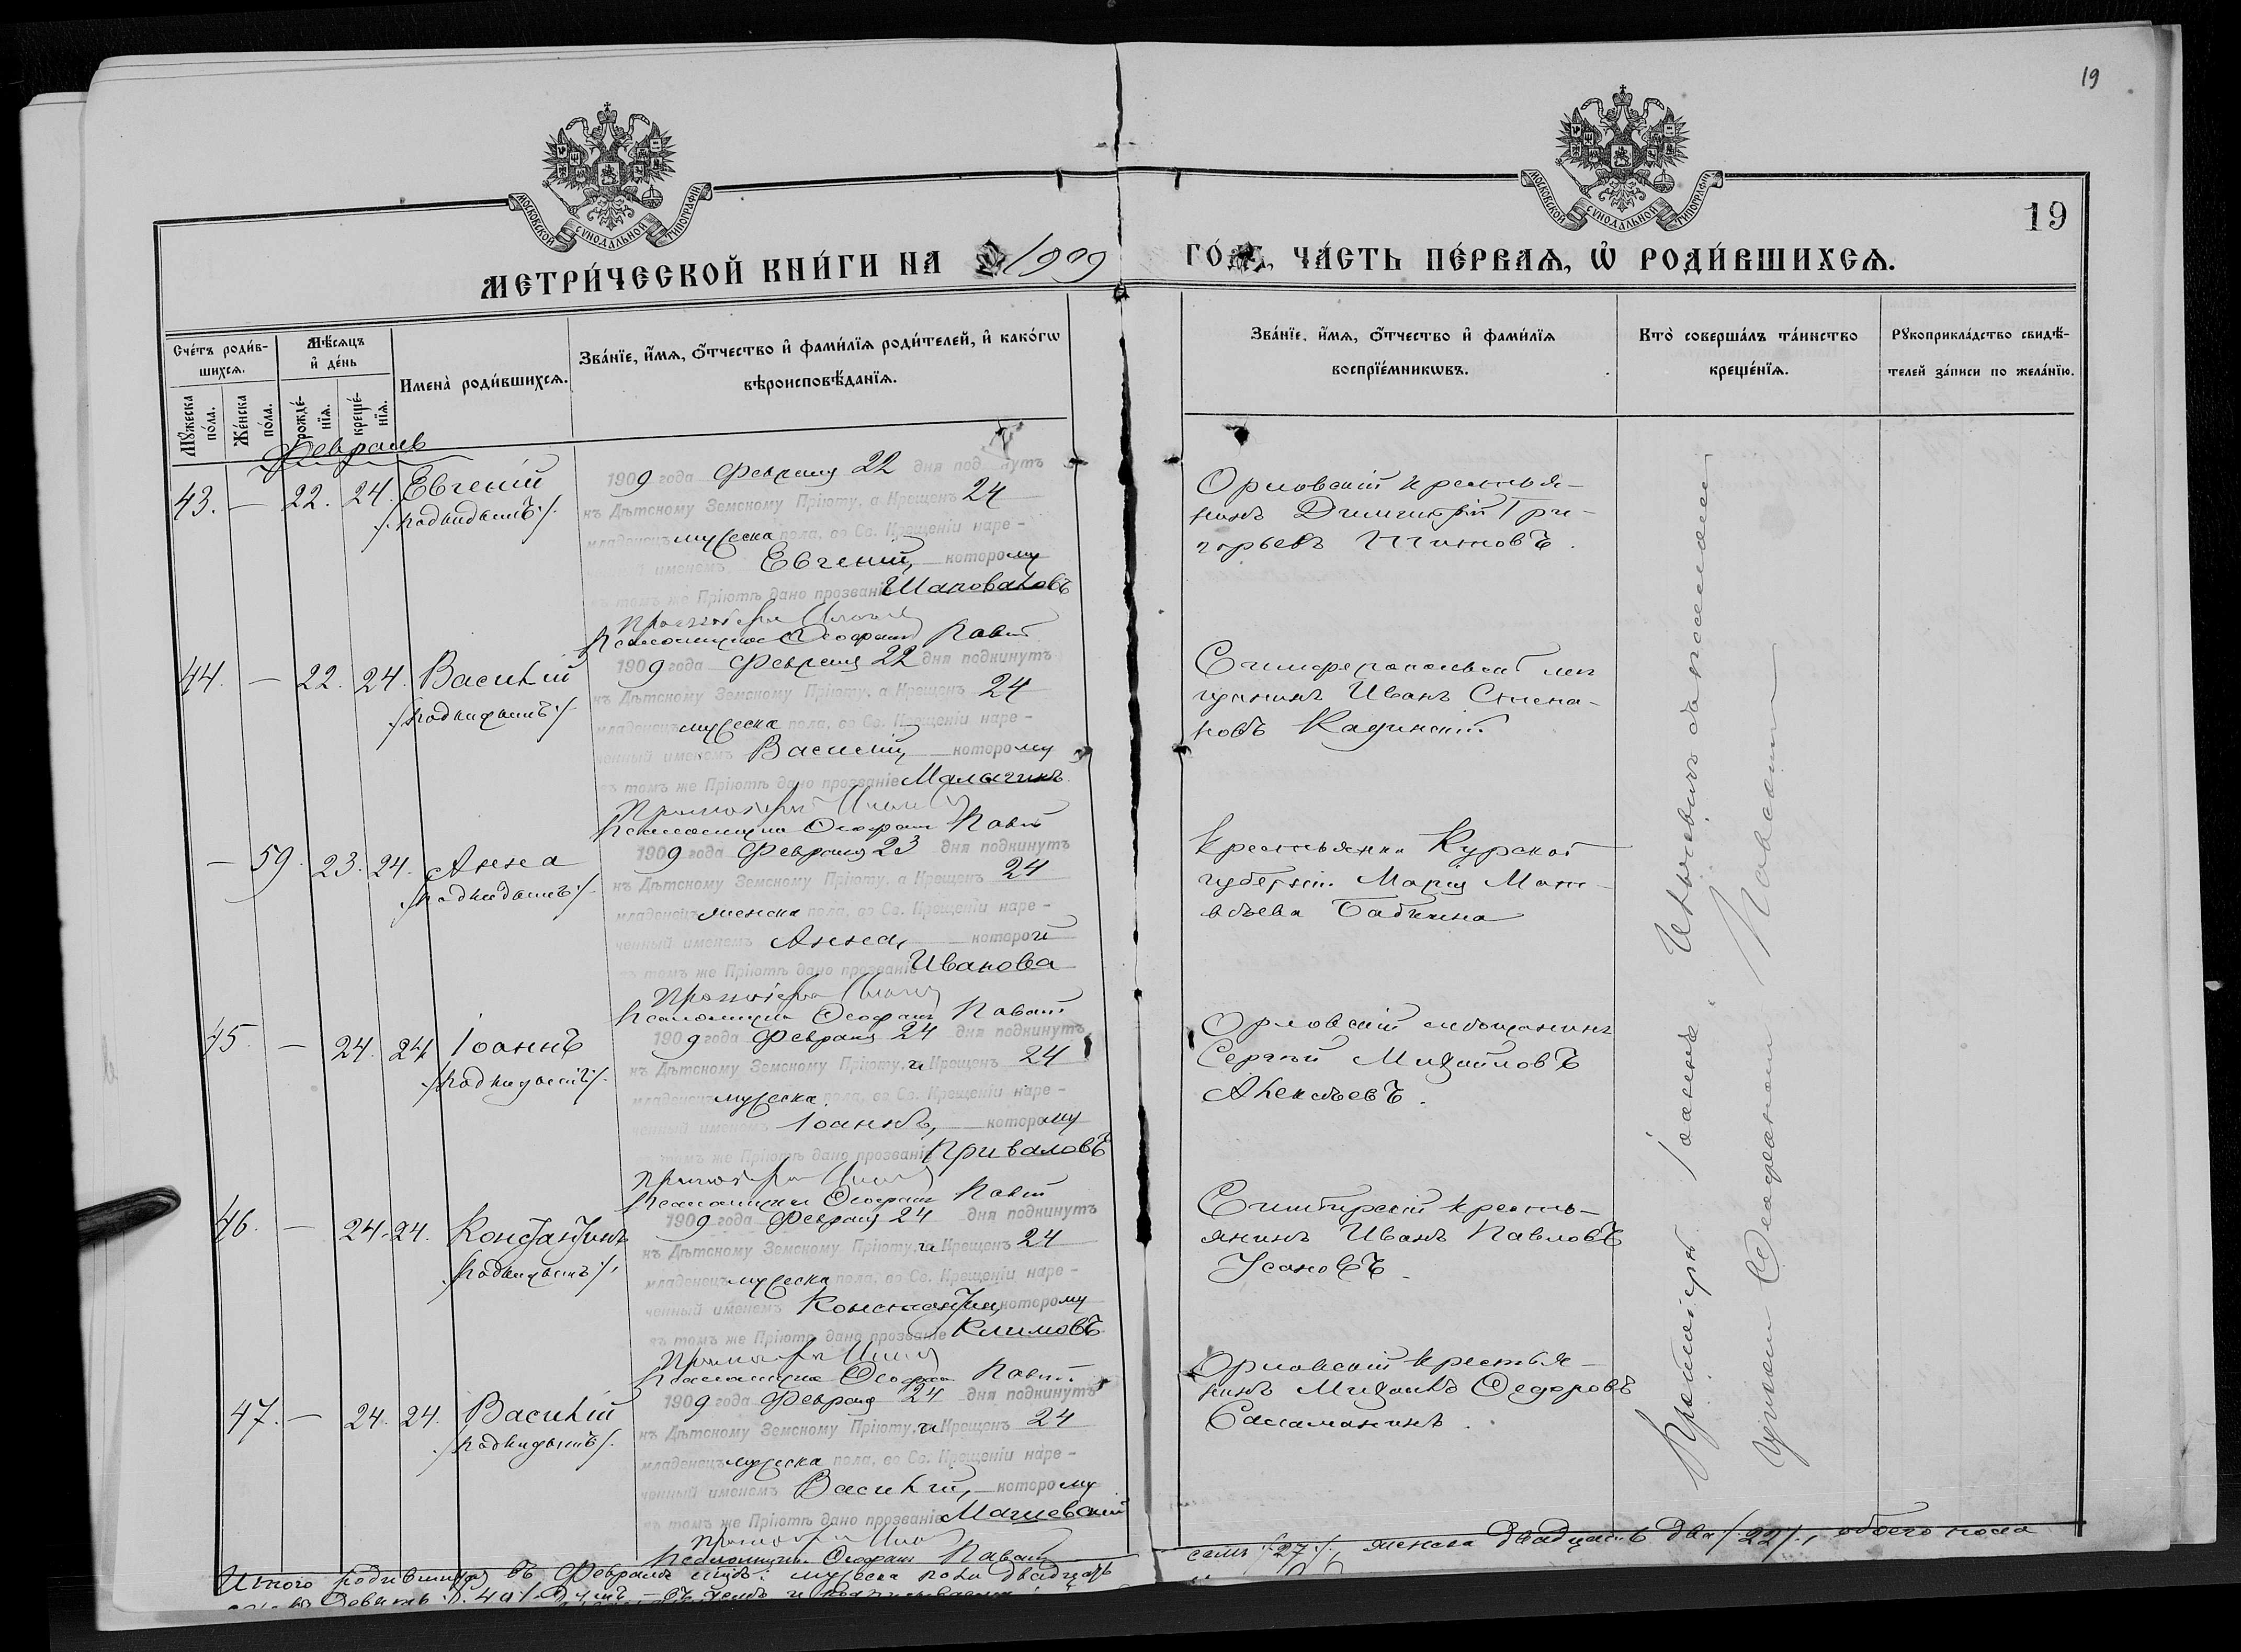 19
МОСКОВСКОЙ СУНОДАЛЬНОЙ ТИПОГРАФІИ
МОСКОВСКОЙ СУНОДАЛЬНОЙ ТИПОГРАФІИ
19
МЕТРИ́ЧЕСКОЙ КНИ́ГИ НА 1909
ГО́ ЧА́СТЬ ПЕ́РВАѦ, Ѡ҆ РОДИ́ВШИХСѦ.
Сче́тъ роди́в-
шихсѧ.
Мѣ́сѧцъ
и҆ де́нь
Имена̀ роди́вшихсѧ.
Зва́нїе, и҆́мѧ, ѻ҆́тчество и҆ фами́лїѧ роди́телей, и҆ како́гѡ
вѣроисповѣ́данїѧ.
Мꙋ́жеска по́ла.
Же́нска по́ла.
рожде́-
нїѧ.
креще́-
нїѧ.
Зва́нїе, и҆́мѧ, ѻ҆́тчество и҆ фами́лїѧ
воспрїе́мникѡвъ.
Кто̀ соверша́лъ та́инство
креще́нїѧ.
Рꙋкоприкла́дство свидѣ́-
телей за́писи по жела́нїю.
Февраль
43. — 22. 24. Евгеній
/подкидышъ/.
1909 года Февраля 22 дня подкинутъ
къ Дѣтскому Земскому Пріюту, а Крещенъ 24
младенецъ мужеска пола, во Св. Крещеніи наре-
именемъ Евгеній, которому
въ томъ же Пріютѣ дано прозваніе Шаповаловъ
Псаломщикъ Ѳеофанъ
Орловскій крестья-
нинъ Димитрій Гри-
горьевъ
44. — 22. 24. Василій
/подкидышъ/
1909 года Февраля 22 дня подкинутъ
къ Дѣтскому Земскому Пріюту, а Крещенъ 24
младенецъ мужеска пола, во Св. Крещеніи наре-
ченный именемъ Василій, которому
въ томъ же Пріютѣ дано прозваніе Малыгинъ
Псаломщикъ Ѳеофанъ
Симферопольскій мѣ
щанинъ Иванъ Степа-
новъ
— 59. 23. 24. Анна
/подкидышъ/
1909 года Февраля 23 дня подкинутъ
къ Дѣтскому Земскому Пріюту, а Крещенъ 24
младенецъ женска пола, во Св. Крещеніи наре-
ченный именемъ Анна, которой
въ томъ же Пріютѣ дано прозваніе Иванова
Псаломщикъ Ѳеофанъ
Крестьянка Курской
губерніи Марія Мат-
вѣева
45. — 24. 24. Іоаннъ
/подкидышъ/.
1909 года Февраля 24 дня подкинутъ
къ Дѣтскому Земскому Пріюту, и Крещенъ 24
младенецъ мужеска пола, во Св. Крещеніи наре-
ченный именемъ Іоаннъ, которому
въ томъ же Пріютѣ дано прозваніе Приваловъ
Псаломщикъ Ѳеофанъ
Орловскій мѣщанинъ
Сергѣй Михайловъ
Алексѣевъ.
46. — 24. 24. Константинъ
/подкидышъ/.
1909 года Февраля 24 дня подкинутъ
къ Дѣтскому Земскому Пріюту, и Крещенъ 24
младенецъ мужеска пола, во Св. Крещеніи наре-
ченный именемъ Константинъ, которому
въ томъ же Пріютѣ дано прозваніе Климовъ
Псаломщикъ Ѳеофанъ
Симбирскій кресть-
янинъ Иванъ Павловъ
Усановъ.
47. — 24. 24. Василій
/подкидышъ/.
1909 года Февраля 24 дня подкинутъ
къ Дѣтскому Земскому Пріюту, и Крещенъ 24
младенецъ мужеска пола, во Св. Крещеніи наре-
ченный именемъ Василій, которому
въ томъ же Пріютѣ дано прозваніе
Псаломщикъ Ѳеофанъ
Орловскій крестья-
нинъ Михаилъ Ѳедоровъ
Саламахинъ.
Протоіерей Іоаннъ
Ѳеофаномъ
Итого родившихся въ Февралѣ мужеска пола двадцать
семь /27/, женска двадцать два /22/, обоего пола
девять /49/